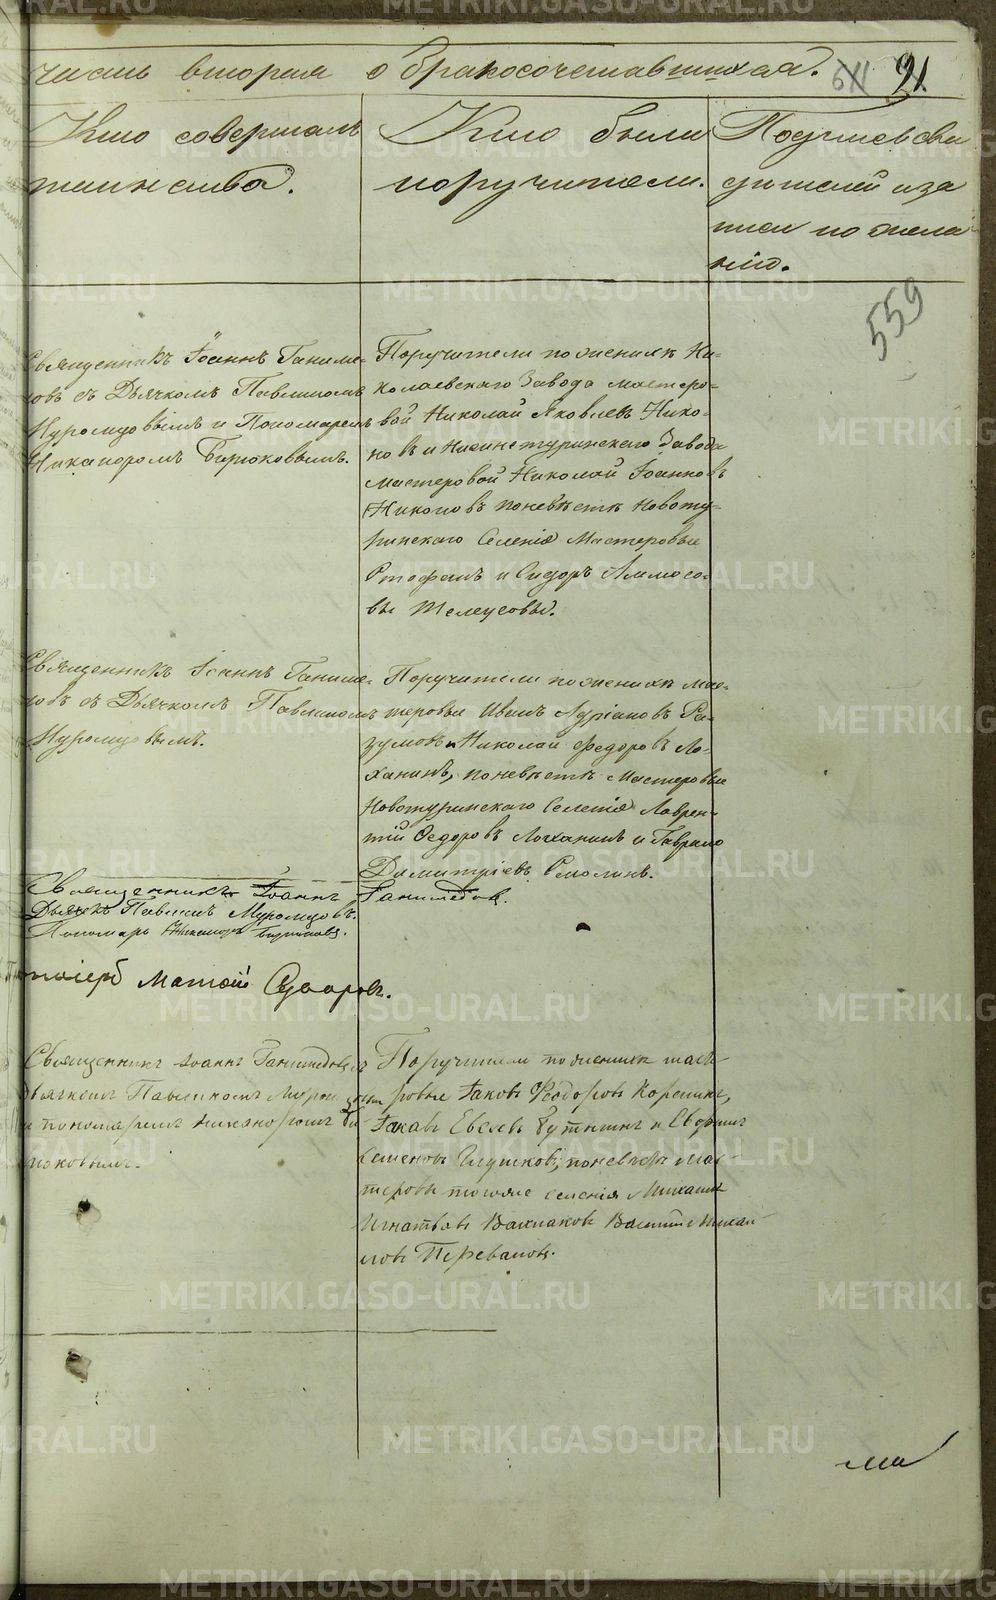 часть вторая о бракосочетавшихся.
611 91.
Кто совершалъ
таинство.
Кто были
поручители.
Подписи сви
дителей иза
писи по жела
нію.
559
Священникъ Іоаннъ Ганиме-
довъ съ Дьячкомъ Павлиномъ
Муромцовымъ и Пономаремъ
Никаноромъ Бирюковымъ.
Поручители по женихѣ Ни-
колаевскаго Завода мастеро-
вой Николай Яковлевъ Нико-
новъ и Нижнетуринскаго Завода
мастеровой Николай Іоанновъ
Никоновъ поневѣстѣ Новоту-
ринскаго Селенія Мастеровые
Стефанъ и Сидоръ Аммосо-
вы Телеусовы.
Священникъ Іоаннъ Ганиме-
довъ съ Дьячкомъ Павлиномъ
Муромцовымъ.
Поручители по женихѣ мас-
теровые Иванъ Лупіановъ Ра-
зумовъ и Николай Федоровъ Ло-
ханинъ, поневѣстѣ Мастеровые
Новотуринскаго Селенія Лаврен-
тій Федоровъ Лоханинъ и Гаврило
Димитріевъ Смолинъ.
Священникъ Іоаннъ Ганимедовъ.
Дьячекъ Павлинъ Муромцовъ.
Пономарь Никаноръ Бирюковъ.
Матѳій
Священникъ Іоаннъ Ганимедовъ съ
дьячкомъ Павлиномъ Муромцовым
и пономаремъ Никаноромъ Би
рюковымъ.
Поручители по женихѣ масте
ровые Іаковъ Феодоровъ Корепинъ,
Іаковъ Евсевъ и
Семеновъ Глушковъ; поневѣстѣ Мас-
теровые тогоже селенія Михаилъ
Игнатьевъ Василій Михаи
ловъ Переваловъ.
METRIKI.GASO-URAL.RU